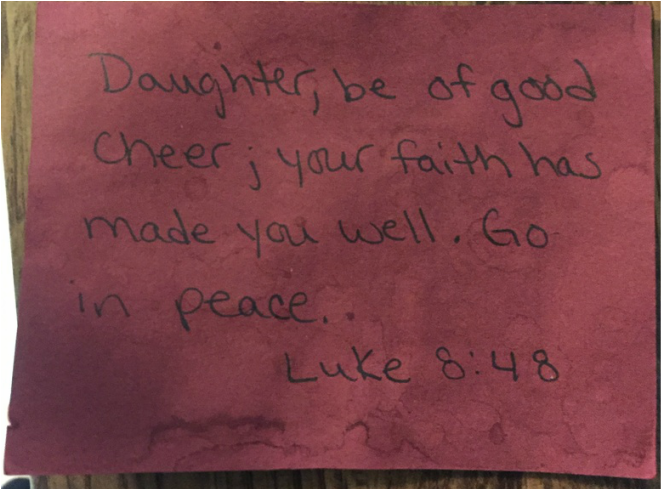 Daughter, be of good
cheer; your faith has
made you well. Go
in peace.
Luke 8:48